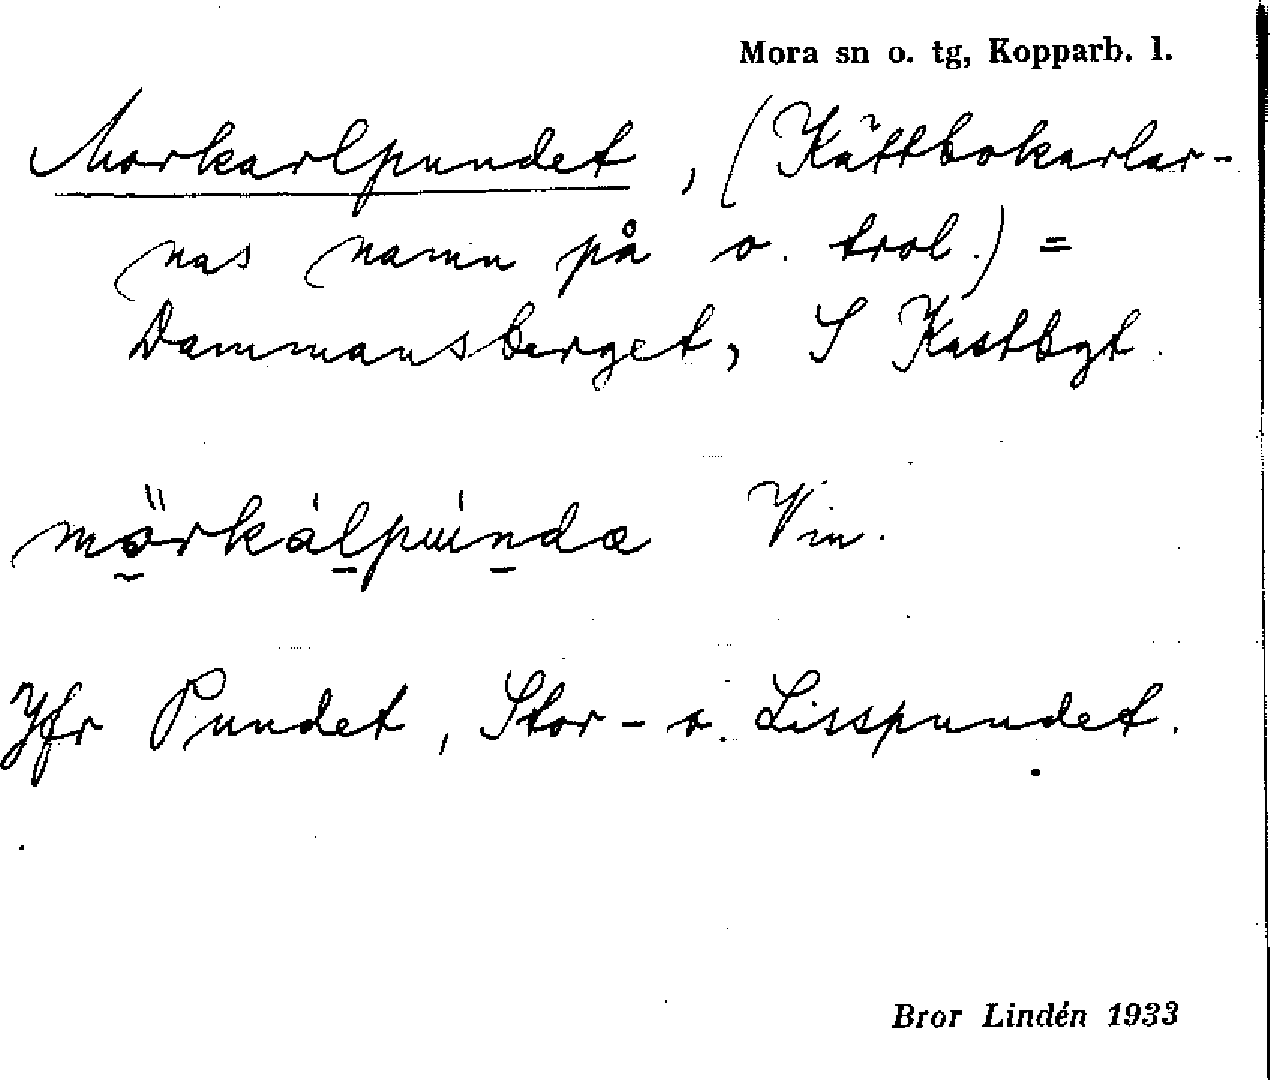 Mora sn o. tg, Kopparb. l.
Morkarlpundet, (Kättbokarlar-
nas namn på o. trol.) =
Dammansberget, S Kastbgt.
mö̰rkálpúndæ Vin.
Jfr Pundet, Stor- o. Lisspundet.
Bror Lindén 1933